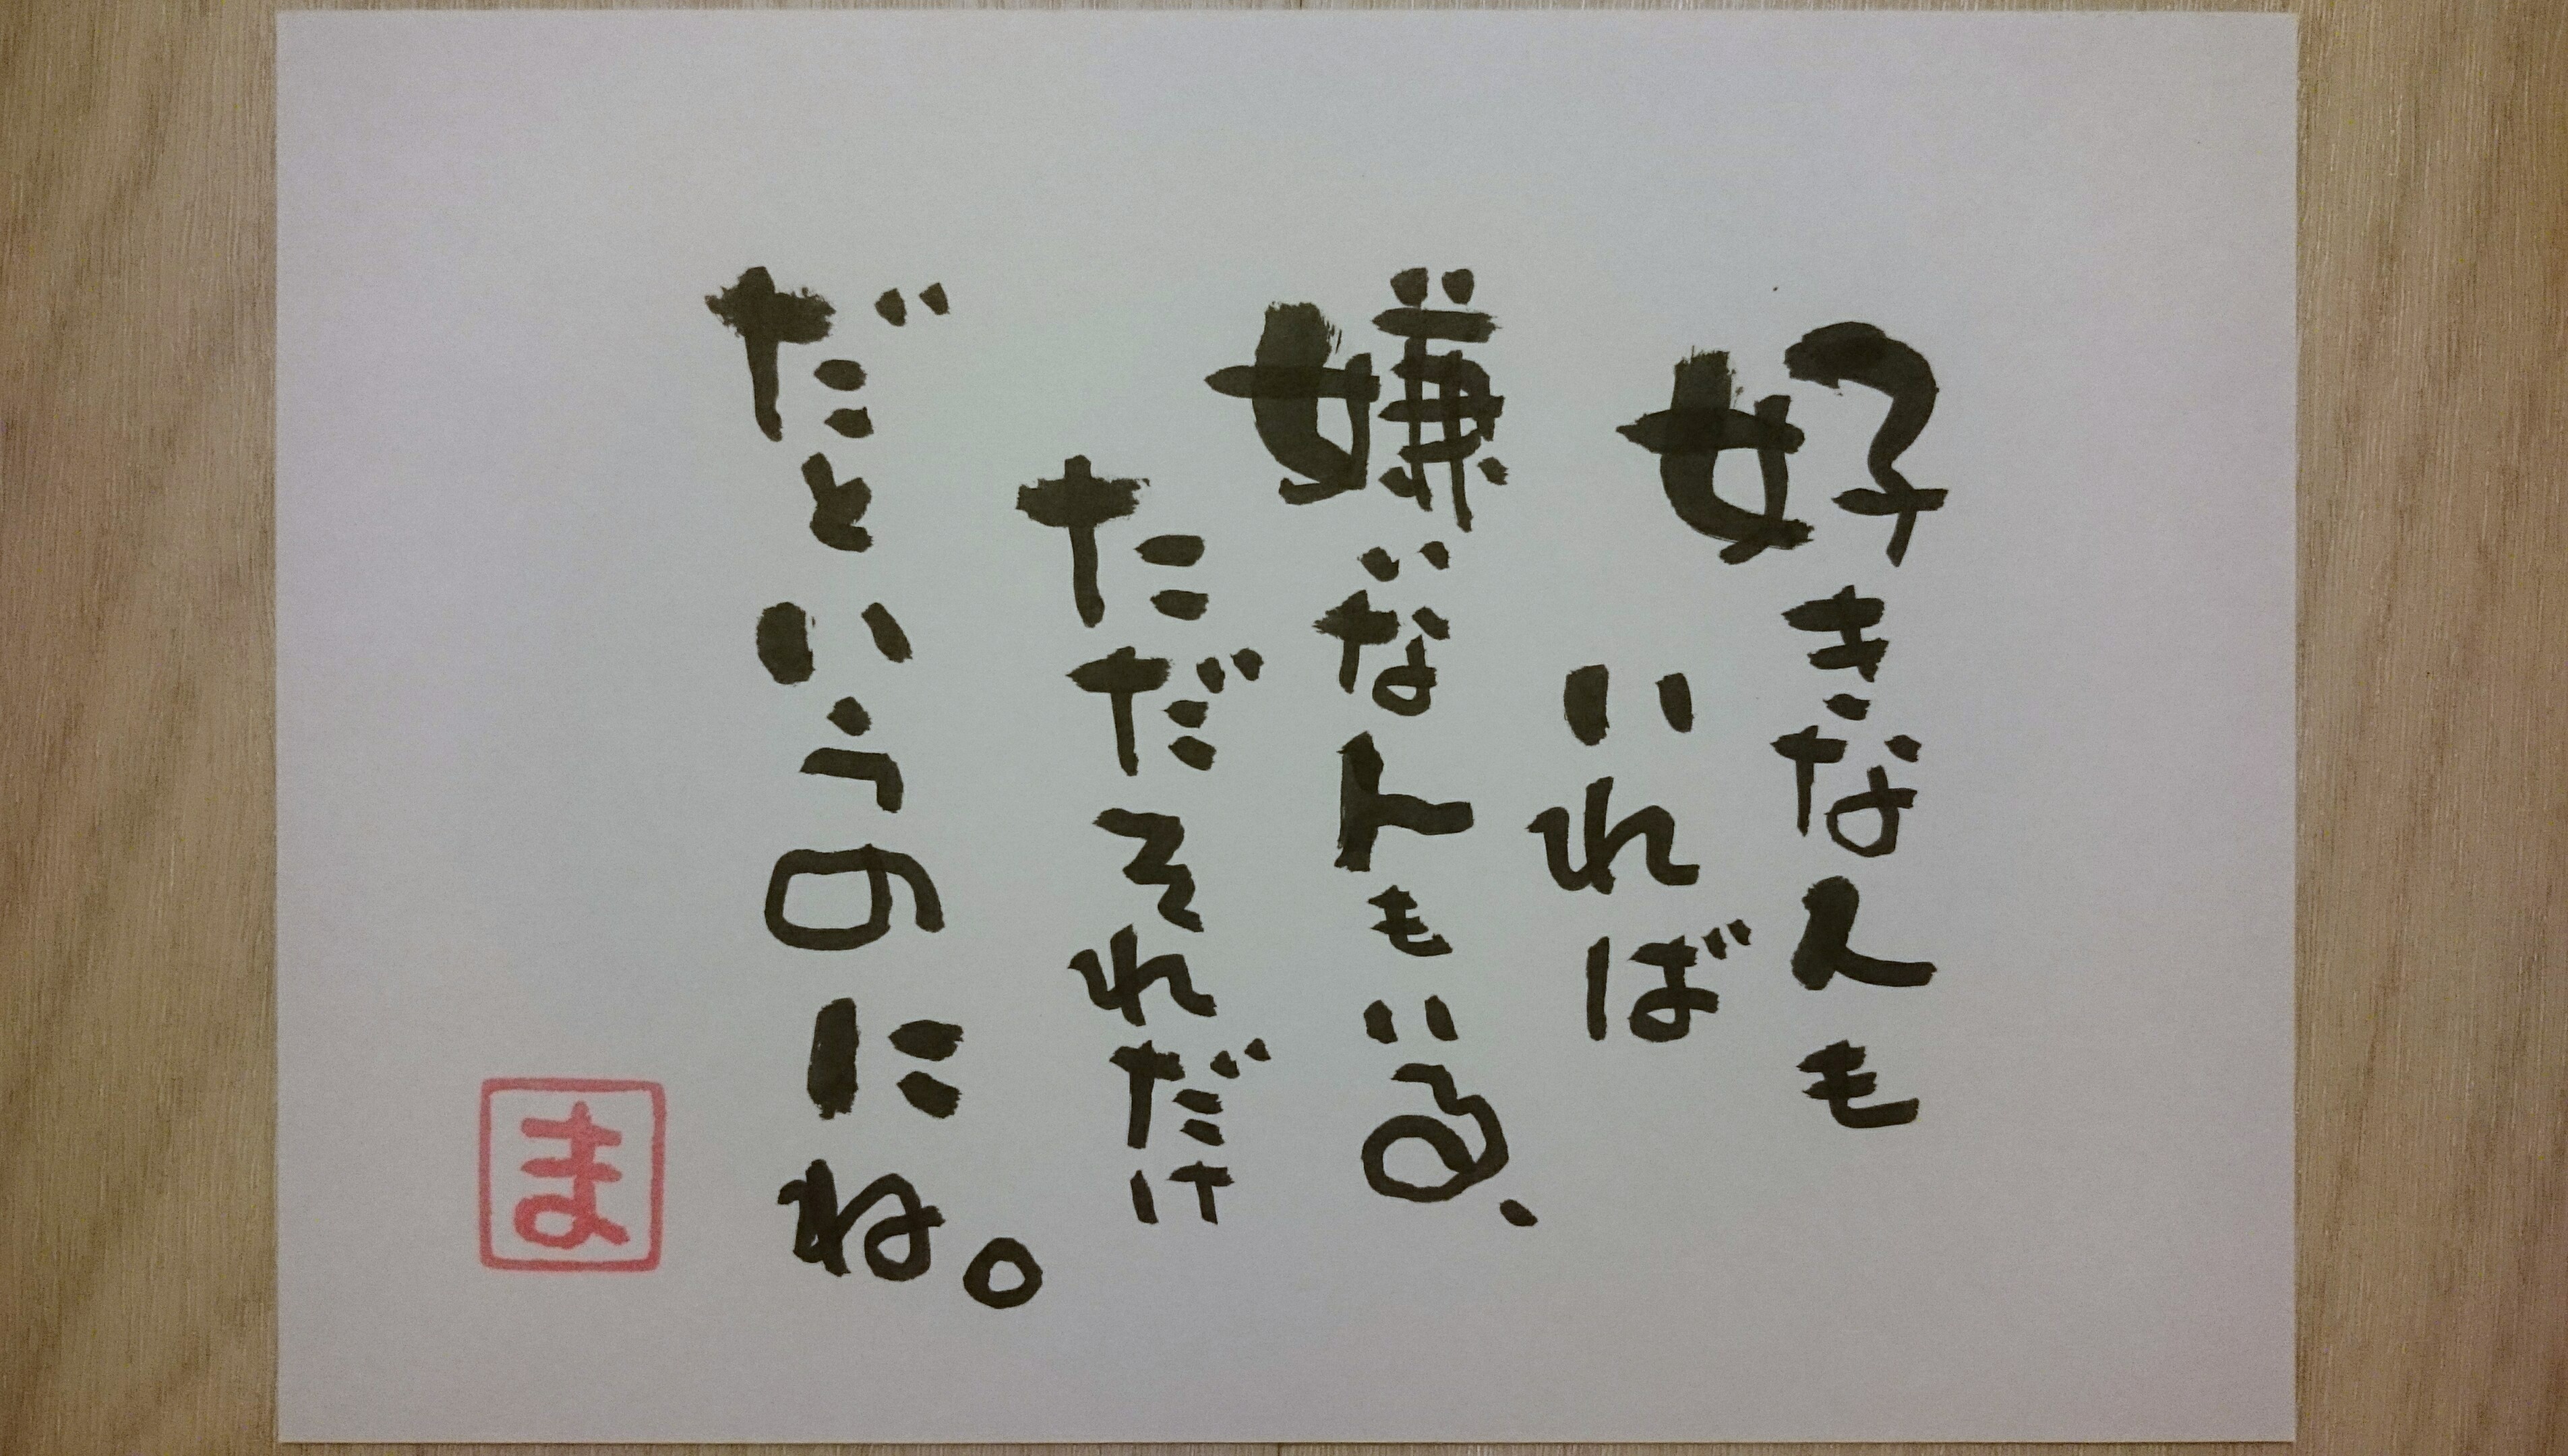 好きな人も
いれば
嫌いな人もいる、
ただそれだけ
だというのにね。
ま